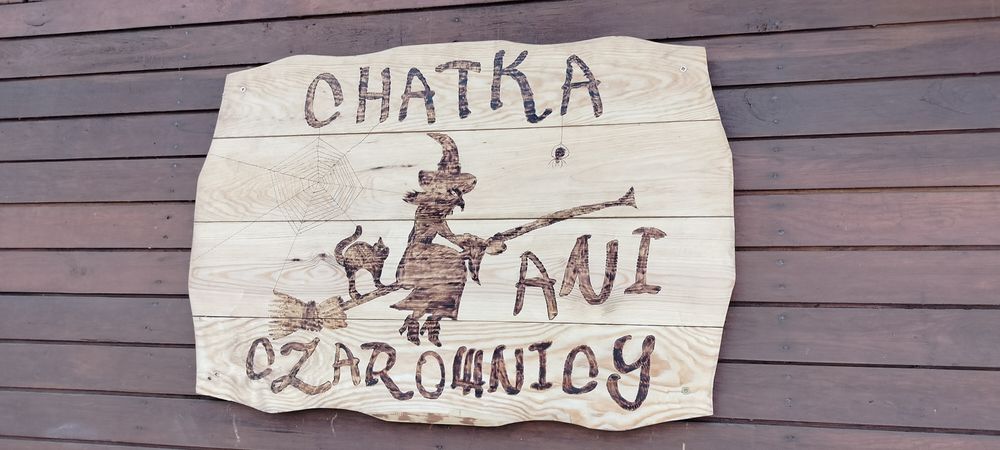 CHATKA
ANI
CZAROWNICY